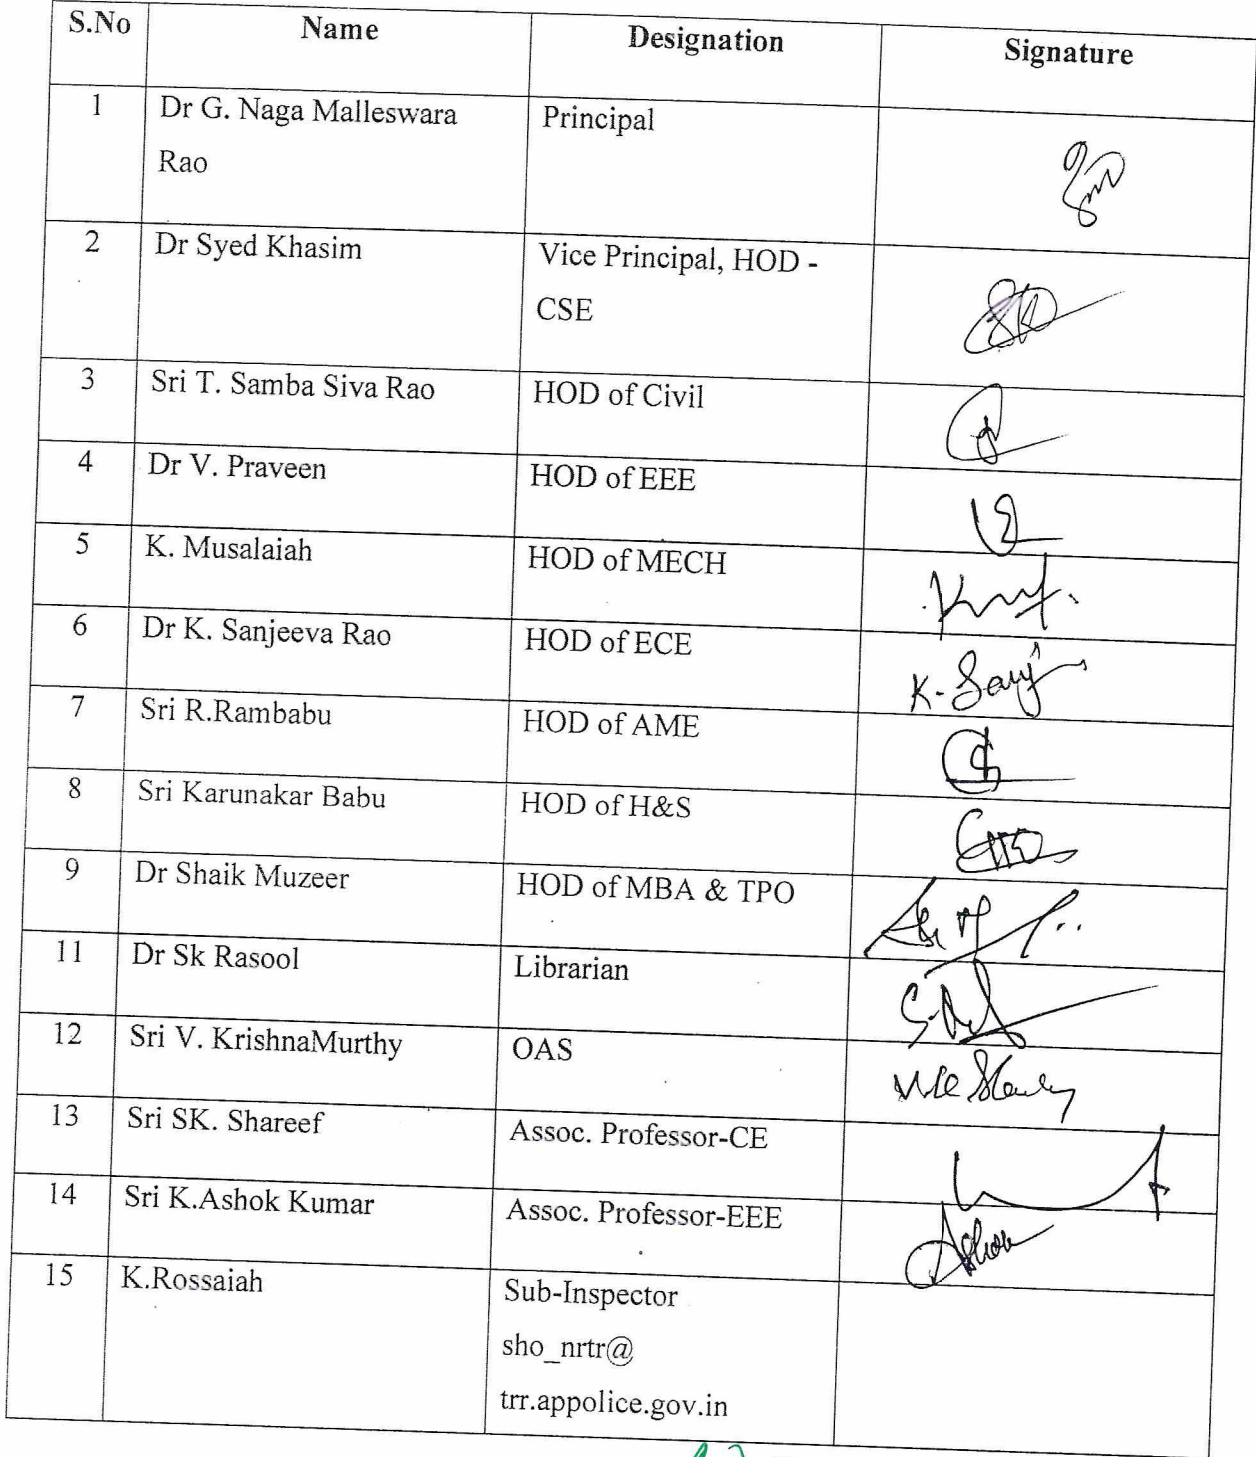 S.No Name Designation Signature
1 Dr G. Naga Malleswara Principal
Rao
2 Dr Syed Khasim Vice Principal, HOD -
CSE
3 Sri T. Samba Siva Rao HOD of Civil
4 Dr V. Praveen HOD of EEE
5 K. Musalaiah HOD of MECH
6 Dr K. Sanjeeva Rao HOD of ECE
7 Sri R.Rambabu HOD of AME
8 Sri Karunakar Babu HOD of H&S
9 Dr Shaik Muzeer HOD of MBA & TPO
11 Dr Sk Rasool Librarian
12 Sri V. KrishnaMurthy OAS
13 Sri SK. Shareef Assoc. Professor-CE
14 Sri K.Ashok Kumar Assoc. Professor-EEE
15 K.Rossaiah Sub-Inspector
sho_nrtr@
trr.appolice.gov.in